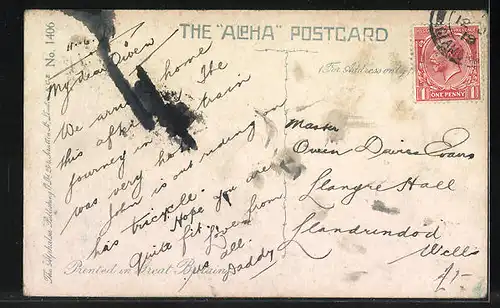 THE "ALPHA" POSTCARD
No. 1406
(For Address only)
My dear Owen
We arrived home
this afternoon. The
journey in train
was very hot
John is out riding on
his tricycle.
Hope you were
Quite fit. Love from
us all.
Daddy
Master
Owen Davies Evans
Llangre Hall
Llandrindod
Wells
1/-
ONE PENNY
Printed in Great Britain